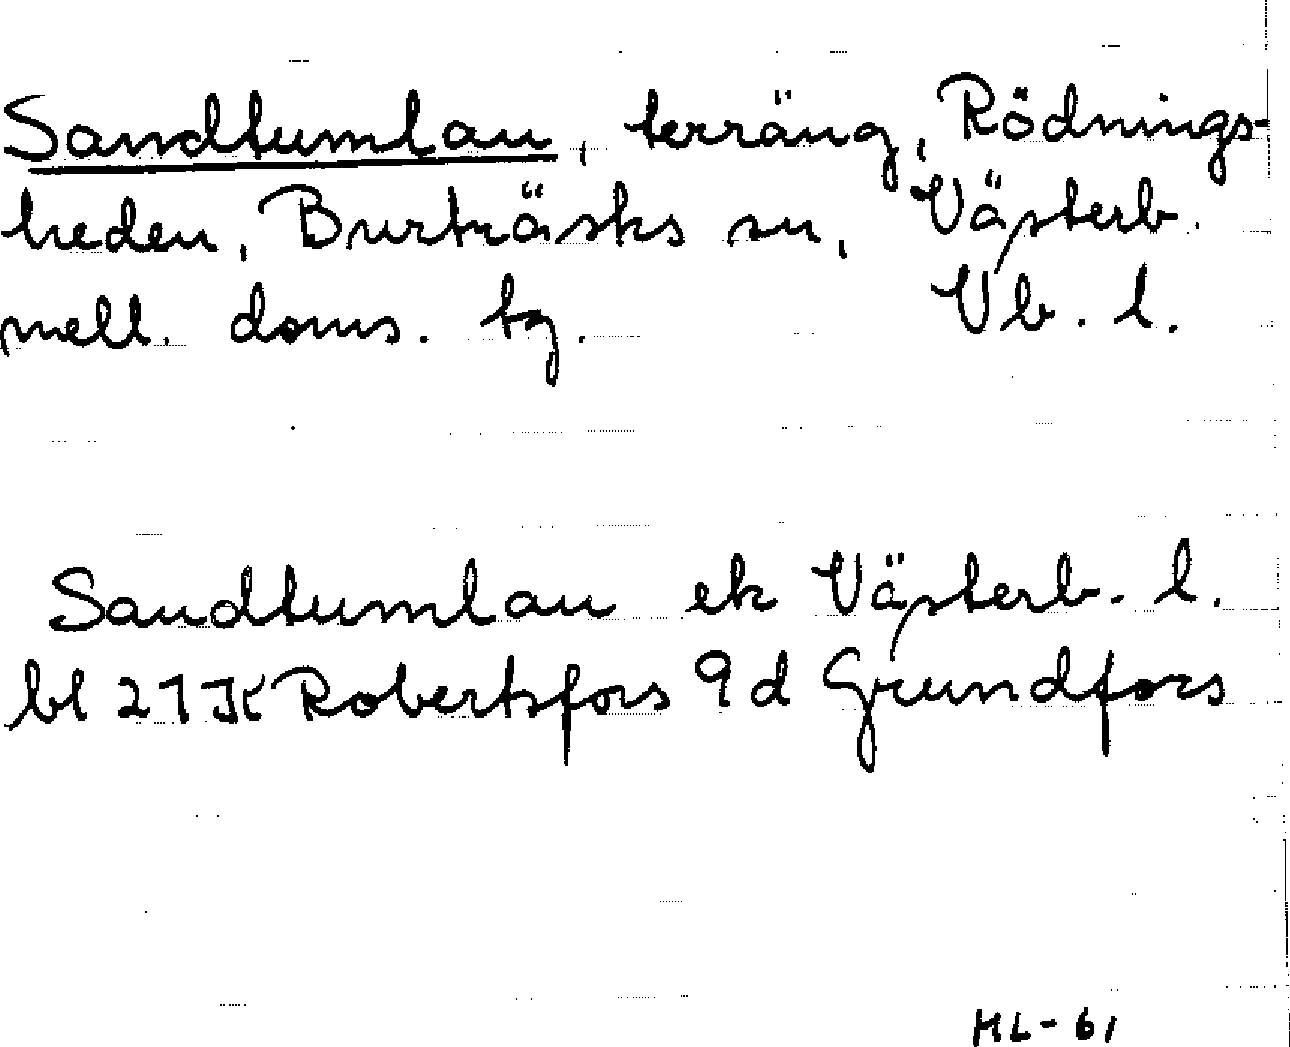 Sandtumlan, terräng, Rödnings-
heden, Burträsks sn, Västerb.
mell. doms. tg. Vb. l.
Sandtumlan ek Västerb. l.
bl 21K Robertsfors 9d Grundfors
ML-61